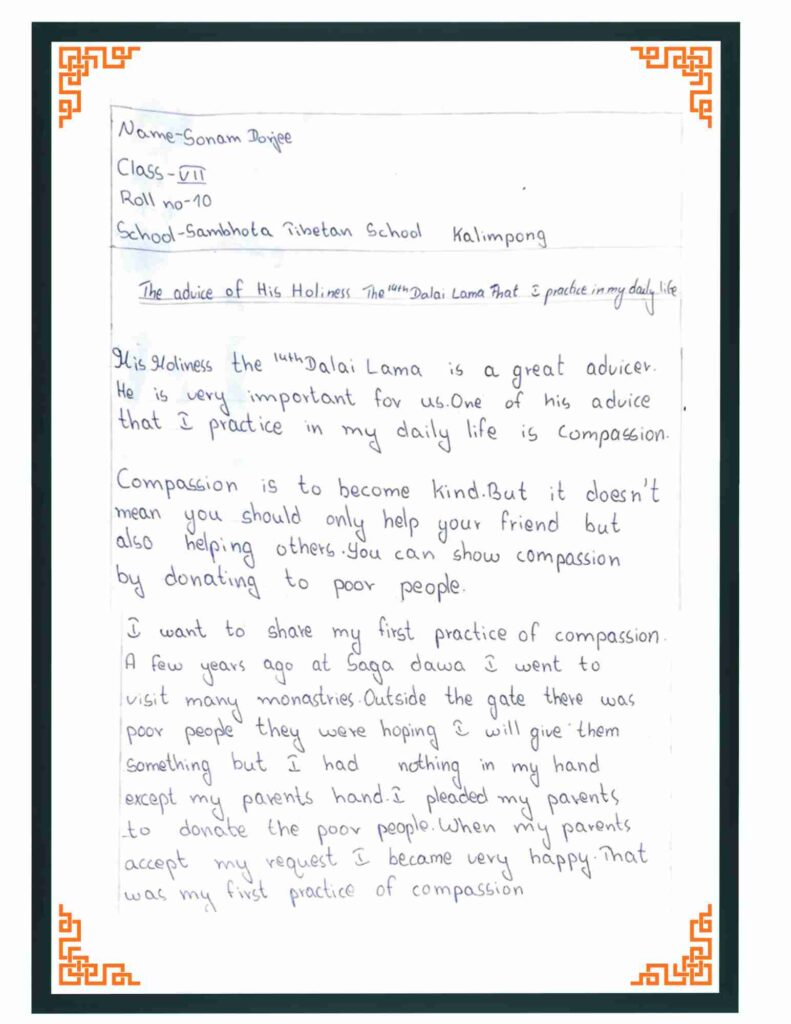 Name-Sonam Dorjee
Class-VII
Roll no-10
School-Sambhota Tibetan School Kalimpong
The advice of His Holiness The 14th Dalai Lama That I practice in my daily life
His Holiness the 14th Dalai Lama is a great advicer.
He is very important for us.One of his advice
that I practice in my daily life is Compassion.
Compassion is to become kind.But it doesn't
mean you should only help your friend but
also helping others.You can show compassion
by donating to poor people.
I want to share my first practice of compassion.
A few years ago at Saga dawa I went to
visit many monastries.Outside the gate there was
poor people they were hoping I will give them
something but I had nothing in my hand
except my parents hand.I pleaded my parents
to donate the poor people.When my parents
accept my request I became very happy.That
was my first practice of compassion